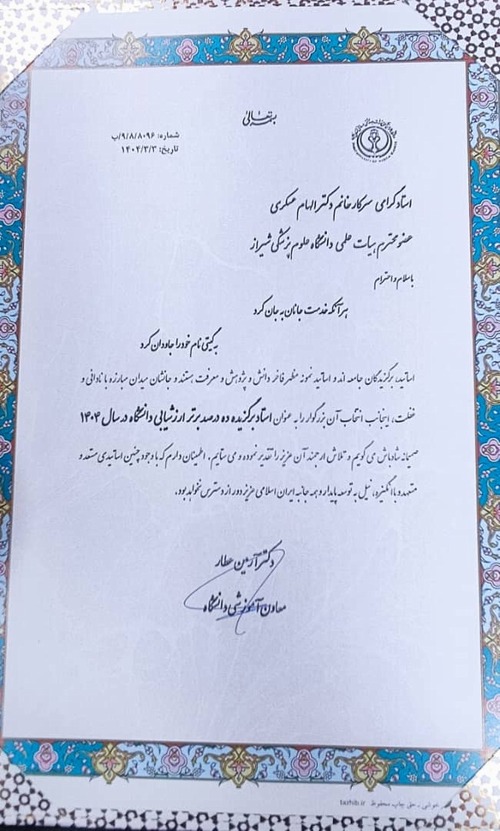 بسمه تعالی
شماره: ۹/۸/۸۰۹۶/ب
تاریخ: ۱۴۰۴/۳/۳
استاد گرامی سرکار خانم دکتر الهام عسکری
عضو محترم هیات علمی دانشگاه علوم پزشکی شیراز
با سلام و احترام
هر آنکه خدمت جانان به جان کرد
به گیتی نام خود را جاودان کرد
اساتید، برگزیدگان جامعه اند و اساتید نمونه مظهر فاخر دانش و پژوهش و معرفت هستند و جانشان میدان مبارزه با نادانی و
غفلت، اینجانب انتخاب آن بزرگوار را به عنوان استاد برگزیده ده درصد برتر ارزشیابی دانشگاه در سال ۱۴۰۴
صمیمانه شادباش می گویم و تلاش ارجمند آن عزیز را تقدیر نموده و می ستایم. اطمینان دارم که با وجود چنین اساتیدی مستعد و
متعهد و با انگیزه، نیل به توسعه پایدار و همه جانبه ایران اسلامی عزیز دور از دسترس نخواهد بود.
دکتر آرمین عطار
معاون آموزشی دانشگاه
حق چاپ محفوظ tazhib.ir